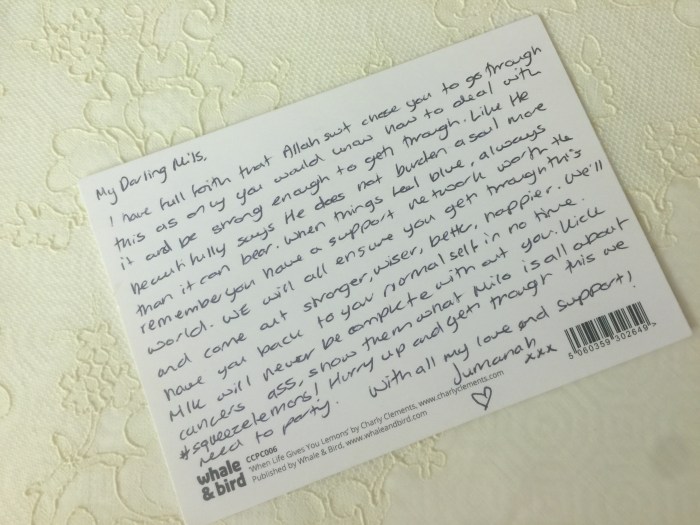 My Darling Mils,
I have full faith that Allah swt chose you to go through
this as only you would know how to deal with
it and be strong enough to get through. Like He
beautifully says He does not burden a soul more
than it can bear. When things feel blue, always
remember you have a support network worth the
world. WE will all ensure you get through this
and come out stronger, wiser, better, happier. We'll
have you back to your normal self in no time.
MIK will never be complete with out you. Kick
cancers ass, show them what Milo is all about
#squeezelemons! Hurry up and get through this we
need to party.
With all my love and support!
Jumanah
xxx
5 060359 302649 >
whale
& bird
CCPC006
'When Life Gives You Lemons' by Charly Clements, www.charlyclements.com
Published by Whale & Bird, www.whaleandbird.com